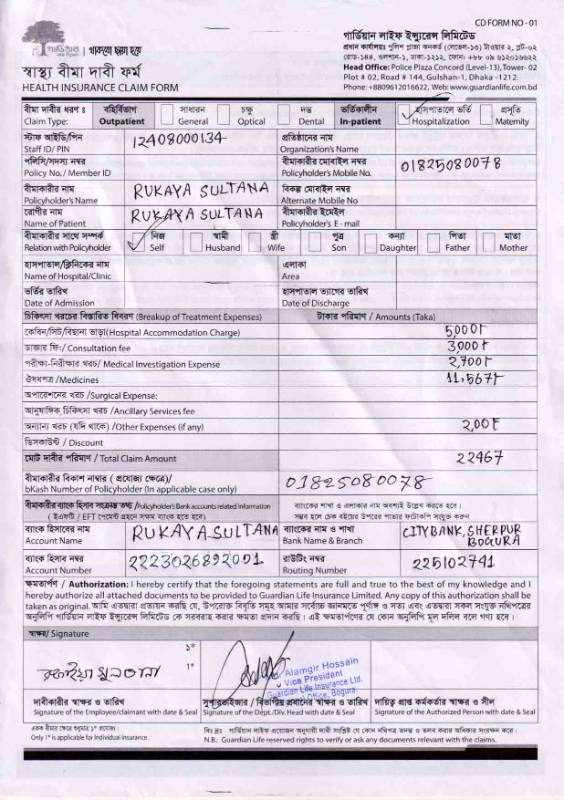 CD FORM NO - 01
গার্ডিয়ান লাইফ ইন্স্যুরেন্স লিমিটেড
থাকলে ছায়া হয়ে
প্রধান কার্যালয়ঃ পুলিশ প্লাজা কনকর্ড (লেভেল-১৩) টাওয়ার ২, প্লট-০২
রোড-১৪৪, গুলশান-১, ঢাকা-১২১২, ফোন: +৮৮ ০৯ ৬১২০১৬৬২২
Head Office: Police Plaza Concord (Level-13), Tower- 02
Plot # 02, Road # 144, Gulshan-1, Dhaka -1212.
Phone: +8809612016622, Web: www.guardianlife.com.bd
স্বাস্থ্য বীমা দাবী ফর্ম
HEALTH INSURANCE CLAIM FORM
বীমা দাবীর ধরণ ঃ বহির্বিভাগ সাধারন চক্ষু দন্ত ভর্তিকালীন হাসপাতালে ভর্তি প্রসূতি
Claim Type: Outpatient General Optical Dental In-patient Hospitalization Maternity
স্টাফ আইডি/পিন 12408000134 প্রতিষ্ঠানের নাম
Staff ID/ PIN Organization's Name
পলিসি/সদস্য নম্বর বীমাকারীর মোবাইল নম্বর 01825080078
Policy No. / Member ID Policyholder's Mobile No.
বীমাকারীর নাম RUKAYA SULTANA বিকল্প মোবাইল নম্বর
Policyholder's Name Alternate Mobile No
রোগীর নাম RUKAYA SULTANA বীমাকারীর ইমেইল
Name of Patient Policyholder's E - mail
বীমাকারীর সাথে সম্পর্ক নিজ স্বামী স্ত্রী পুত্র কন্যা পিতা মাতা
Relation with Policyholder Self Husband Wife Son Daughter Father Mother
হাসপাতাল/ক্লিনিকের নাম এলাকা
Name of Hospital/Clinic Area
ভর্তির তারিখ হাসপাতাল ত্যাগের তারিখ
Date of Admission Date of Discharge
চিকিৎসা খরচের বিস্তারিত বিবরণ (Breakup of Treatment Expenses) টাকার পরিমাণ / Amounts (Taka)
কেবিন/সিট/বিছানা ভাড়া(Hospital Accommodation Charge)
ডাক্তার ফি:/ Consultation fee
পরীক্ষা-নিরীক্ষার খরচ/ Medical Investigation Expense
ঔষধপত্র /Medicines
অপারেশনের খরচ /Surgical Expense:
আনুষাঙ্গিক চিকিৎসা খরচ /Ancillary Services fee
অন্যান্য খরচ (যদি থাকে) /Other Expenses (if any)
ডিসকাউন্ট / Discount
মোট দাবীর পরিমাণ / Total Claim Amount 22467
বীমাকারীর বিকাশ নাম্বার ( প্রযোজ্য ক্ষেত্রে)/ 01825080078
bKash Number of Policyholder (In applicable case only)
বীমাকারীর ব্যাংক হিসাব সংক্রান্ত তথ্য / Policyholder's Bank accounts related Information ব্যাংকের শাখা ও এলাকার নাম অবশ্যই উল্লেখ করতে হবে।
( ইএফটি / EFT পেমেন্ট গ্রহনে সক্ষম ব্যাংক হতে হবে) সম্ভব হলে চেক বইয়ের উপরের পাতার ফটোকপি সংযুক্ত করুন
ব্যাংক হিসাবের নাম RUKAYA SULTANA ব্যাংকের নাম ও শাখা CITY BANK, SHERPUR
Account Name Bank Name & Branch BOGURA
ব্যাংক হিসাব নম্বর 2223026892001 রাউটিং নম্বর 225102741
Account Number Routing Number
ক্ষমতার্পণ / Authorization: I hereby certify that the foregoing statements are full and true to the best of my knowledge and I
hereby authorize all attached documents to be provided to Guardian Life Insurance Limited. Any copy of this authorization shall be
taken as original. আমি এতদ্বারা প্রত্যয়ন করছি যে, উপরোক্ত বিবৃতি সমূহ আমার সর্বোচ্চ জ্ঞানমতে পূর্ণাঙ্গ ও সত্য এবং এতদ্বারা সকল সংযুক্ত নথিপত্রের
অনুলিপি গার্ডিয়ান লাইফ ইন্স্যুরেন্স লিমিটেড কে সরবরাহ করার ক্ষমতা প্রদান করছি। এই ক্ষমতার্পণের যে কোন অনুলিপি মূল দলিল বলে গণ্য হবে।
স্বাক্ষর/ Signature
১*
1*
রুকাইয়া সুলতানা
Alamgir Hossain
Vice President
Guardian Life Insurance Ltd.
Office, Bogura.
দাবীকারীর স্বাক্ষর ও তারিখ সুপারভাইজার / বিভাগীয় প্রধানের স্বাক্ষর ও তারিখ দায়িত্ব প্রাপ্ত কর্মকর্তার স্বাক্ষর ও সীল
Signature of the Employee/claimant with date & Seal Signature of the Dept./Div. Head with date & Seal Signature of the Authorized Person with date & Seal
একক বীমার ক্ষেত্রে শুধুমাত্র ১* প্রযোজ্য।
Only 1* is applicable for Individual insurance.
বিঃ দ্রঃ গার্ডিয়ান লাইফ প্রয়োজন অনুযায়ী দাবী সংশ্লিষ্ট যে কোন নথিপত্র তদন্ত ও তলব করার অধিকার সংরক্ষণ করে।
N.B.: Guardian Life reserved rights to verify or ask any documents relevant with the claims.